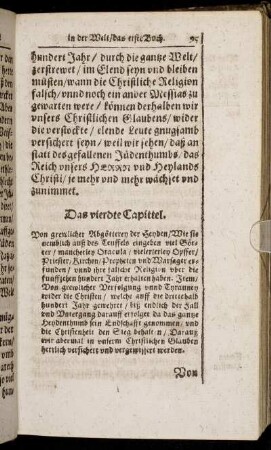 in der Welt/ das erste Buch. 95
hundert Jahr/ durch die gantze Welt/
zerstrewet/ im Elend seyn vnd bleiben
müsten/ wann die Christliche Religion
falsch/ vnnd noch ein ander Messias zu
gewarten were/ können derhalben wir
vnsers Christlichen Glaubens/ wider
die verstockte/ elende Leute gnugsamb
versichert seyn/ weil wir sehen/ daß an
statt des gefallenen Jüdenthumbs/ das
Reich vnsers HERRN vnd Heylands
Christi/ je mehr vnd mehr wächset vnd
zunimmet.
Das vierdte Capittel.
Von grewlicher Abgötterey der Heyden/ Wie sie
nemblich auß des Teuffels eingeben viel Göt-
ter/ mancherley Oracula/ vielerley Opffer/
Priester/ Kirchen/ Propheten vnd Warsager er-
funden/ vnnd ihr falsche Religion vber die
funffzehen hundert Jahr erhalten haben. Item/
Von grewlicher Verfolgung vnnd Tyranney
wider die Christen/ welche auff die dritthalb
hundert Jahr gewehret/ biß endlich der Fall
vnd Vntergang darauff erfolget da das gantze
Heydenthumb sein Endschafft genommen/ vnd
die Christenheit den Sieg behalten/ Darauß
wir abermal in vnserm Christlichen Glauben
herrlich versichert vnd vergewissert werden.
Von